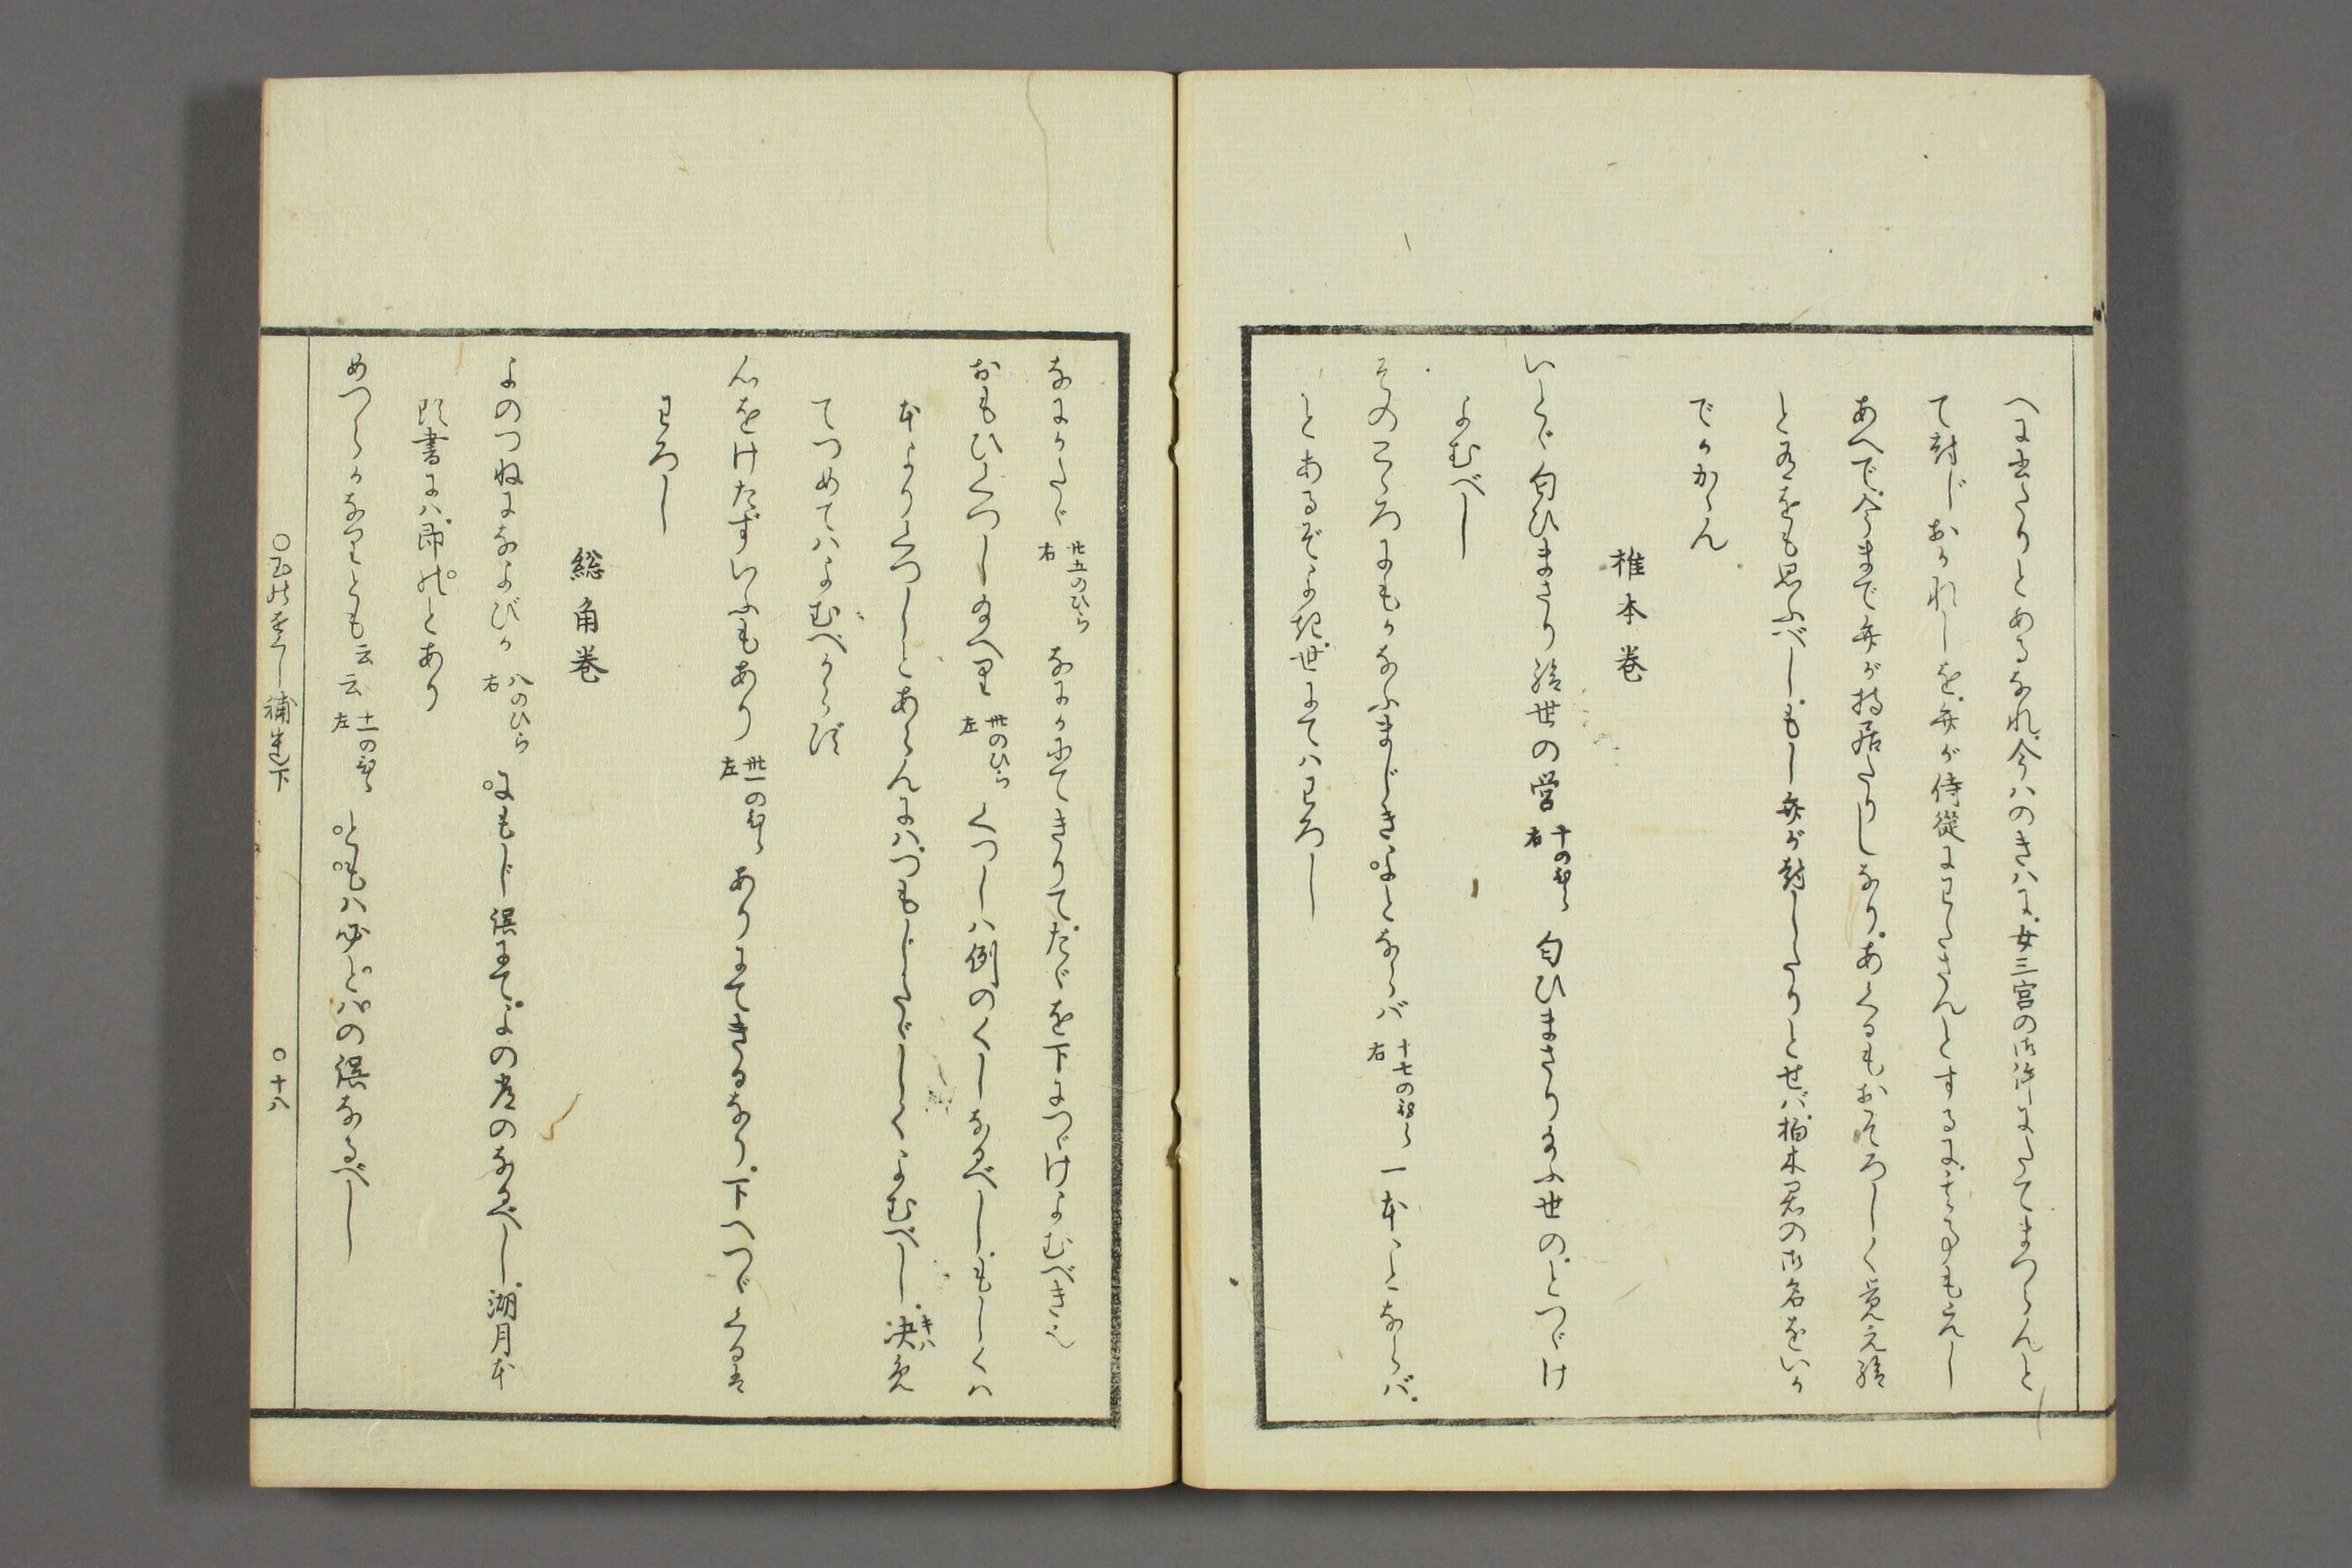 へにまゐりとあるなれ。今ハのきハに。女三宮の御許にたてまつらんと
て封じおかれしを。弁が侍従にわたさんとするに。さる事もえし
あへで。今まで弁が持居たりしなり。あくるもおそろしく覚え給
と有をも思ふべし。もし弁が封したりとせバ。柏木君の御名をいか
でかかゝん
椎本巻
いとゞ匂ひまさり給世の営 十のひら右 匂ひまさり給ふ世の。とつゞけ
よむべし
そのこゝろにもかなふまじきよとならバ 十七のひら右 一本ことならバ。
とあるぞよき。世にてハわろし
なにかたゞ 廿五のひら右 なにかにてきりて。たゞを下につゞけよむべき也
おもひくつし給へり 卅のひら左 くつしハ例のくしなるべし。もしくハ
本よりくつしとあらんにハ。つもじたゞしくよむべし。决(キハ)め
てつめてハよむべからず
心をけたずいふもあり 卅一のひら左 ありにてきるなり。下へつゞくるは
わろし
総角巻
よのつねになよびか 八のひら右 にもじ誤にて。よの常のなるべし。湖月本
頭書にハ。即のとあり
めづらかなりとも云云 十一のひら左 ともハ必とハの誤なるべし
○玉の小櫛補遺下 ○十八